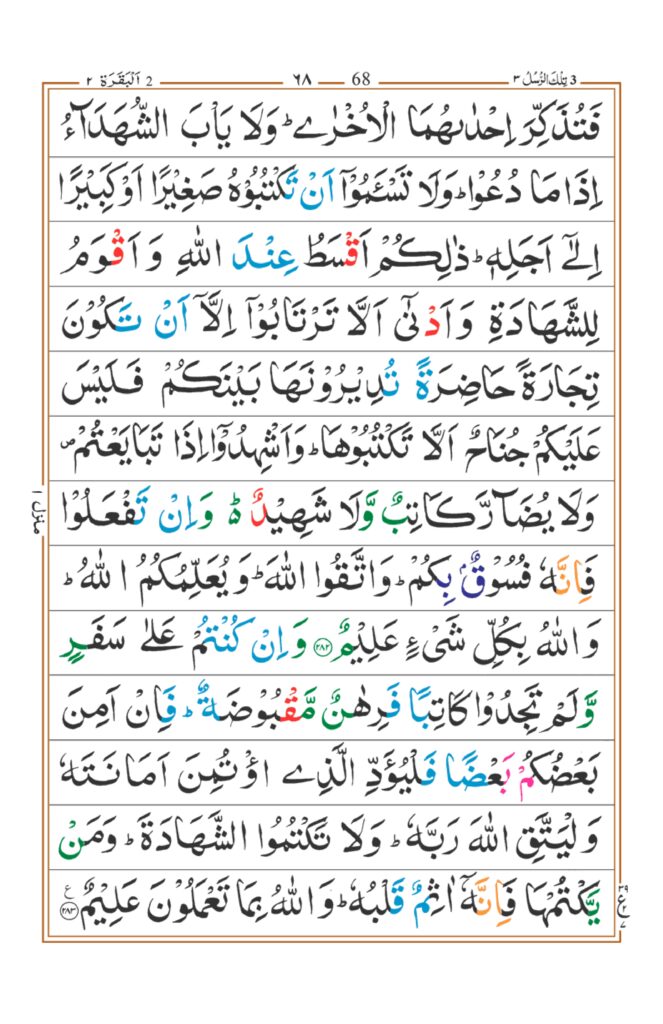 3 تِلْكَ الرُّسُلُ ٣ 68 ٦٨ 2 اَلْبَقَرَة ٢
فَتُذَكِّرَ اِحْدٰىهُمَا الْاُخْرٰىؕ وَلَا يَاْبَ الشُّهَدَآءُ
اِذَا مَا دُعُوْاؕ وَلَا تَسْـَٔمُوْۤا اَنْ تَكْتُبُوْهُ صَغِيْرًا اَوْ كَبِيْرًا
اِلٰٓى اَجَلِهٖؕ ذٰلِكُمْ اَقْسَطُ عِنْدَ اللّٰهِ وَ اَقْوَمُ
لِلشَّهَادَةِ وَ اَدْنٰۤى اَلَّا تَرْتَابُوْۤا اِلَّاۤ اَنْ تَكُوْنَ
تِجَارَةً حَاضِرَةً تُدِيْرُوْنَهَا بَيْنَكُمْ فَلَيْسَ
عَلَيْكُمْ جُنَاحٌ اَلَّا تَكْتُبُوْهَاؕ وَ اَشْهِدُوْۤا اِذَا تَبَايَعْتُمْ۪
وَلَا يُضَآرَّ كَاتِبٌ وَّلَا شَهِيْدٌ ؕ۬ وَ اِنْ تَفْعَلُوْا
فَاِنَّهٗ فُسُوْقٌۢ بِكُمْؕ وَ اتَّقُوا اللّٰهَؕ وَ يُعَلِّمُكُمُ اللّٰهُؕ
وَ اللّٰهُ بِكُلِّ شَیْءٍ عَلِيْمٌ ﴿٢٨٢﴾ وَ اِنْ كُنْتُمْ عَلٰى سَفَرٍ
وَّلَمْ تَجِدُوْا كَاتِبًا فَرِهٰنٌ مَّقْبُوْضَةٌؕ فَاِنْ اَمِنَ
بَعْضُكُمْ بَعْضًا فَلْيُؤَدِّ الَّذِی اؤْتُمِنَ اَمَانَتَهٗ
وَ لْيَتَّقِ اللّٰهَ رَبَّهٗؕ وَلَا تَكْتُمُوا الشَّهَادَةَؕ وَمَنْ
يَّكْتُمْهَا فَاِنَّهٗۤ اٰثِمٌ قَلْبُهٗؕ وَ اللّٰهُ بِمَا تَعْمَلُوْنَ عَلِيْمٌ ﴿٢٨٣﴾ ع
منزل ١
٣٩
ع٢
٧